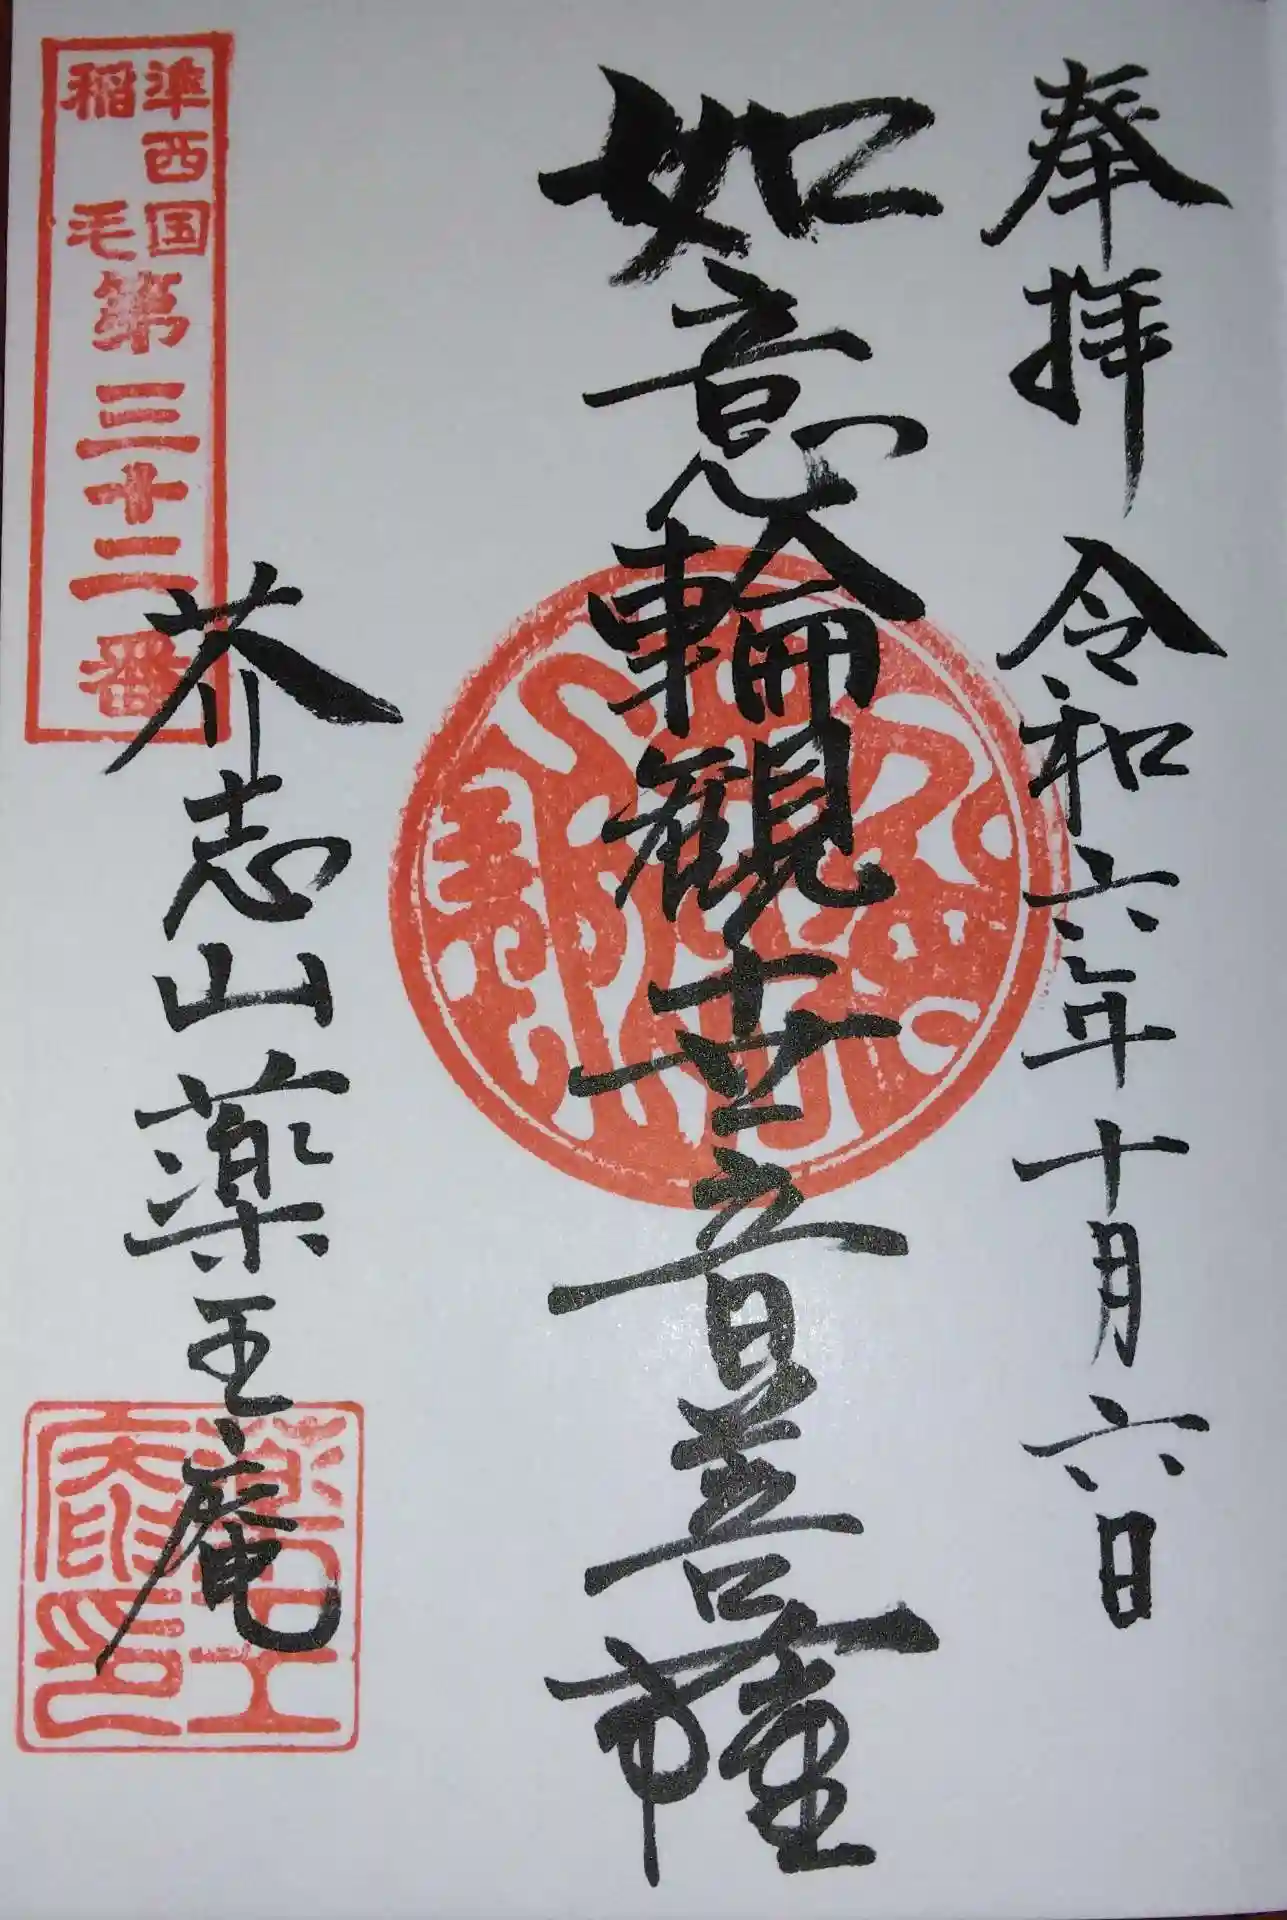 奉拝 令和六年十月六日
如意輪観世音菩薩
準西国
稲毛
第三十二番
芥志山薬王庵
薬王庵印